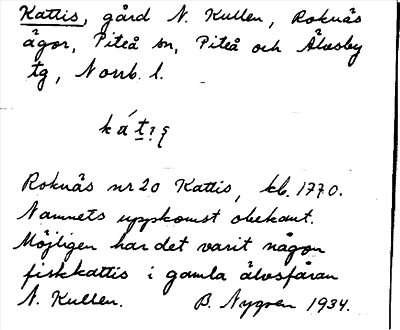 Kattis, gård N. Kullen, Roknäs
ägor, Piteå sn, Piteå och Älvsby
tg, Norrb. l.
Roknäs nr 20 Kattis, kb. 1770.
Namnets uppkomst obekant.
Möjligen har det varit någon
fiskkattis i gamla älvsfåran
N. Kullen. B. Nygren 1934.